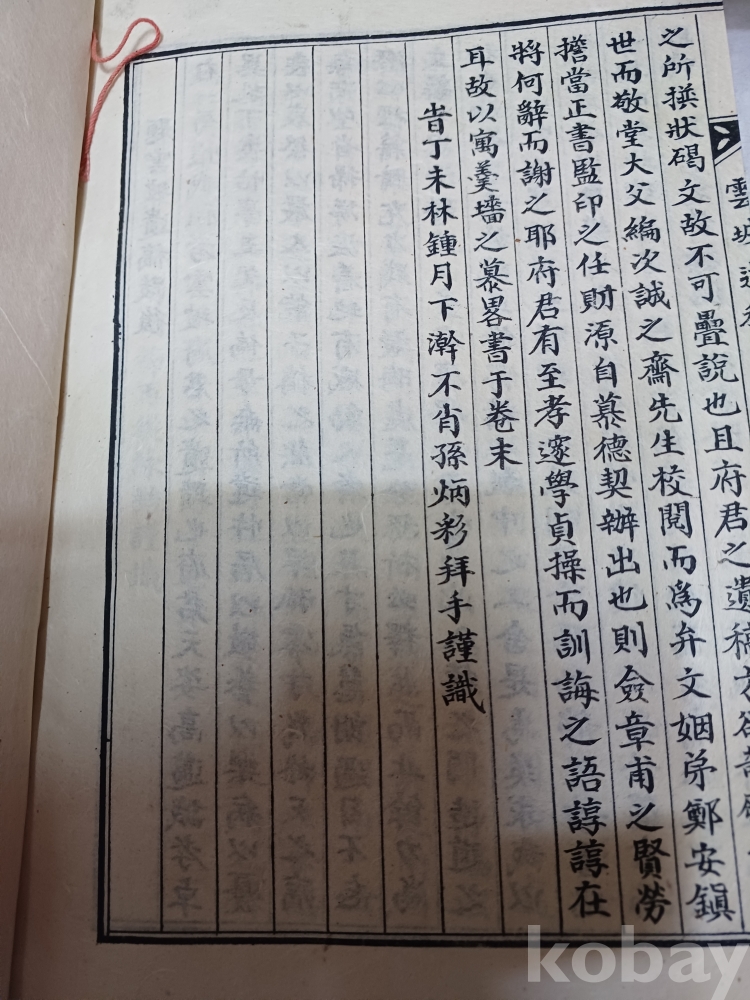 之所撰狀碣文故不可疊說也且府君之遺稿方欲
世而敬堂大父編次誠之齋先生校閱而爲弁文姻弟鄭安鎭
擔當正書監印之任財源自慕德契辦出也則僉章甫之賢勞
將何辭而謝之耶府君有至孝邃學貞操而訓誨之語諄諄在
耳故以寓羹墻之慕畧書于卷末
旹丁未林鍾月下澣不肖孫炳彩拜手謹識
雲坡遺
kobay